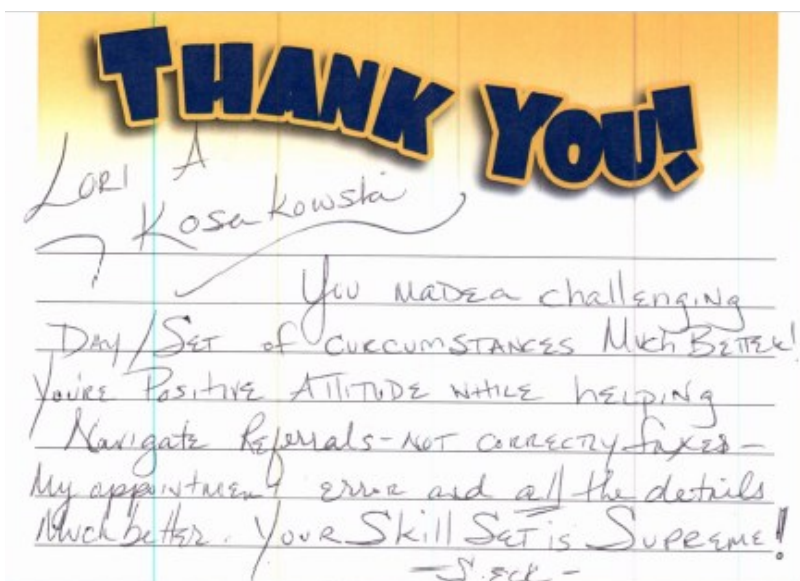 THANK YOU!
LORI A
Kosakowski
You MADE a challENgiNg
DAY/SET of CURCUMSTANCES MUCh BETTER!
You're Positive ATTITUDE WHILE hELPINg
Navigate Referrals-NOT CORRECTLY faxes-
My appointment error and all the details
Much better. YOUR Skill SET is SUPREME!